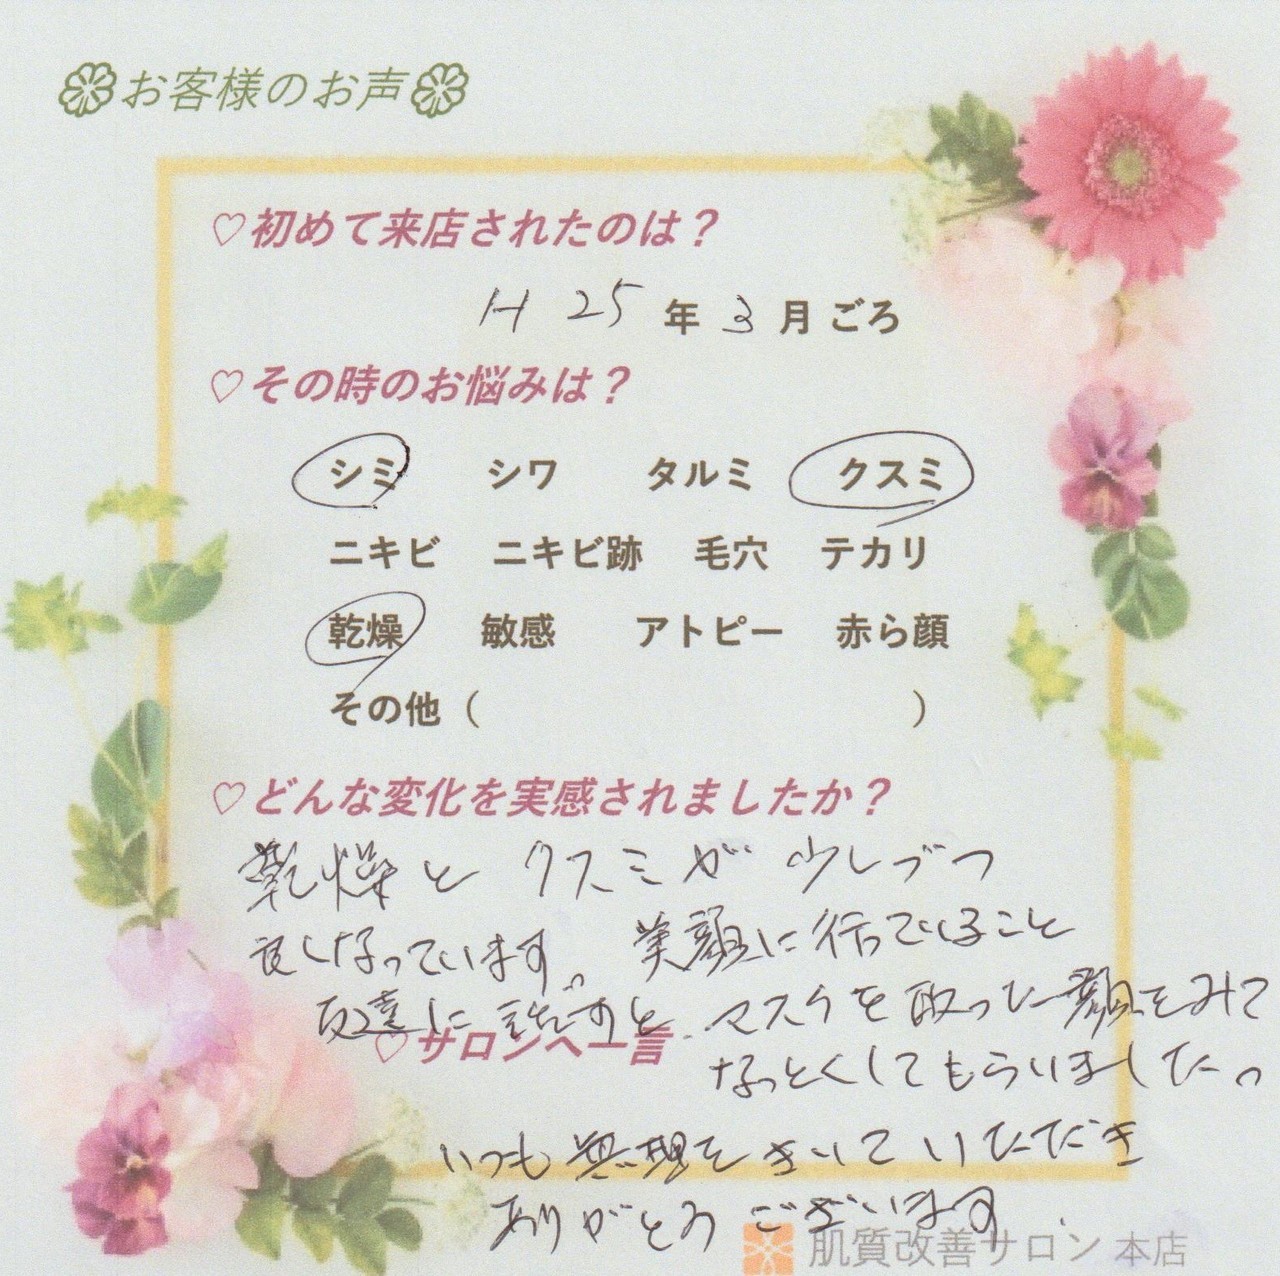 お客様のお声
♡初めて来店されたのは？
H 25 年 3 月 ごろ
♡その時のお悩みは？
シミ シワ タルミ クスミ
ニキビ ニキビ跡 毛穴 テカリ
乾燥 敏感 アトピー 赤ら顔
その他（ ）
♡どんな変化を実感されましたか？
乾燥と クスミが 少しづつ
良くなっています。 美顔に行っていること
友達に話すと マスクを取った顔をみて
♡サロンへ一言
なっとくしてもらいました。
いつも無理をきいていただき
ありがとうございます
肌質改善サロン 本店